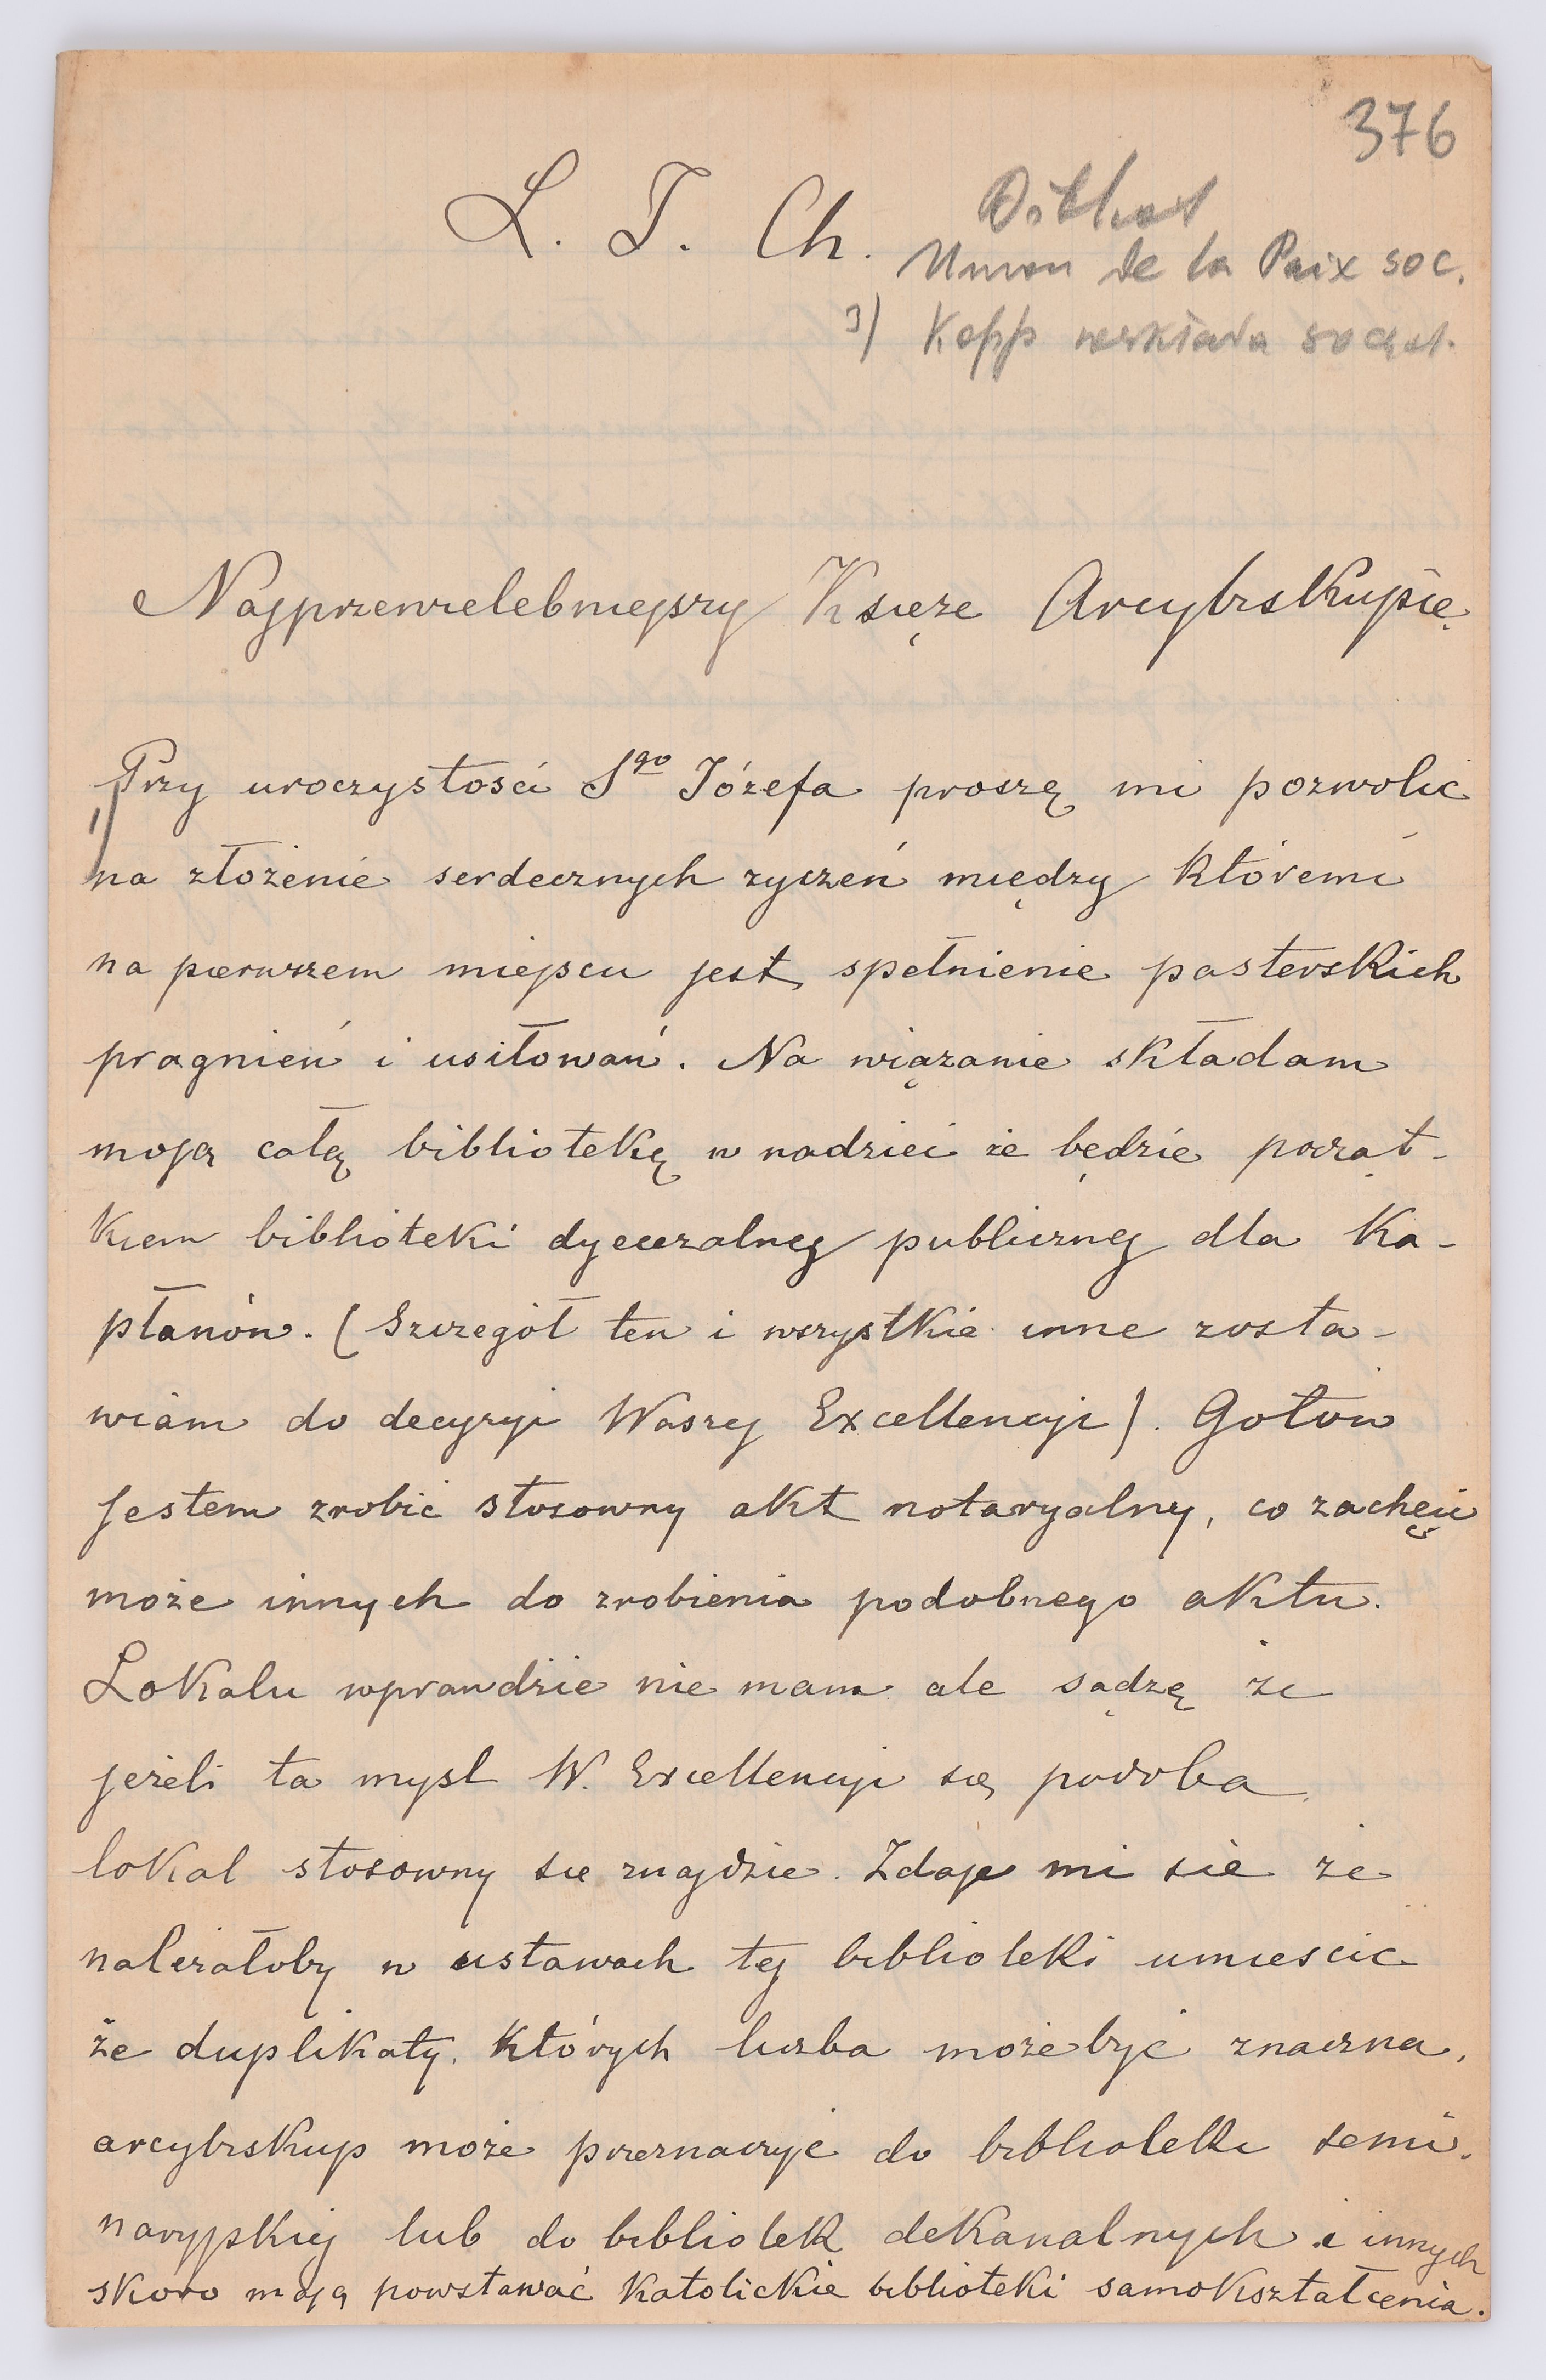 376
L. J. Ch.
Union de la Paix soc.
3) Kopp
Najprzewielebniejszy Księże Arcybiskupie
Przy uroczystości Sgo Józefa proszę mi pozwolić
1)
na złożenie serdecznych zyczeń między któremi
na pierwszem miejscu jest spełnienie pasterskich
pragnień i usiłowań. Na wiązanie składam
moją całą bibliotekę w nadziei że będzie począt-
kiem biblioteki dyecezalnej publicznej dla Ka-
płanów. (Szczegół ten i wszystkie inne zosta-
wiam do decyzyi Waszej Excellencyi). Gotów
jestem zrobić stosowny akt notaryalny, co zachęci
może innych do zrobienia podobnego aktu.
Lokalu wprawdzie nie mam ale sądzę że
jeżeli ta mysl W. Excellencyi się podoba
lokal stosowny sie znajdzie. Zdaje mi sie że
należałoby w ustawach tej biblioteki umiescic
że duplikaty, których liczba może być znaczna,
arcybiskup może przeznaczyć do biblioteki semi-
naryjskiej lub do bibliotek dekanalnych i innych
skoro mają powstawać katolickie biblioteki samokształcenia.